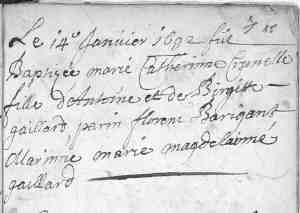 Le 14e Janvier 1692 fut
Baptizée marie Catherine
fille d'Antoine et de Birgitte
gaillard, parin florent Barigant
Marinne marie magdelainne
gaillard